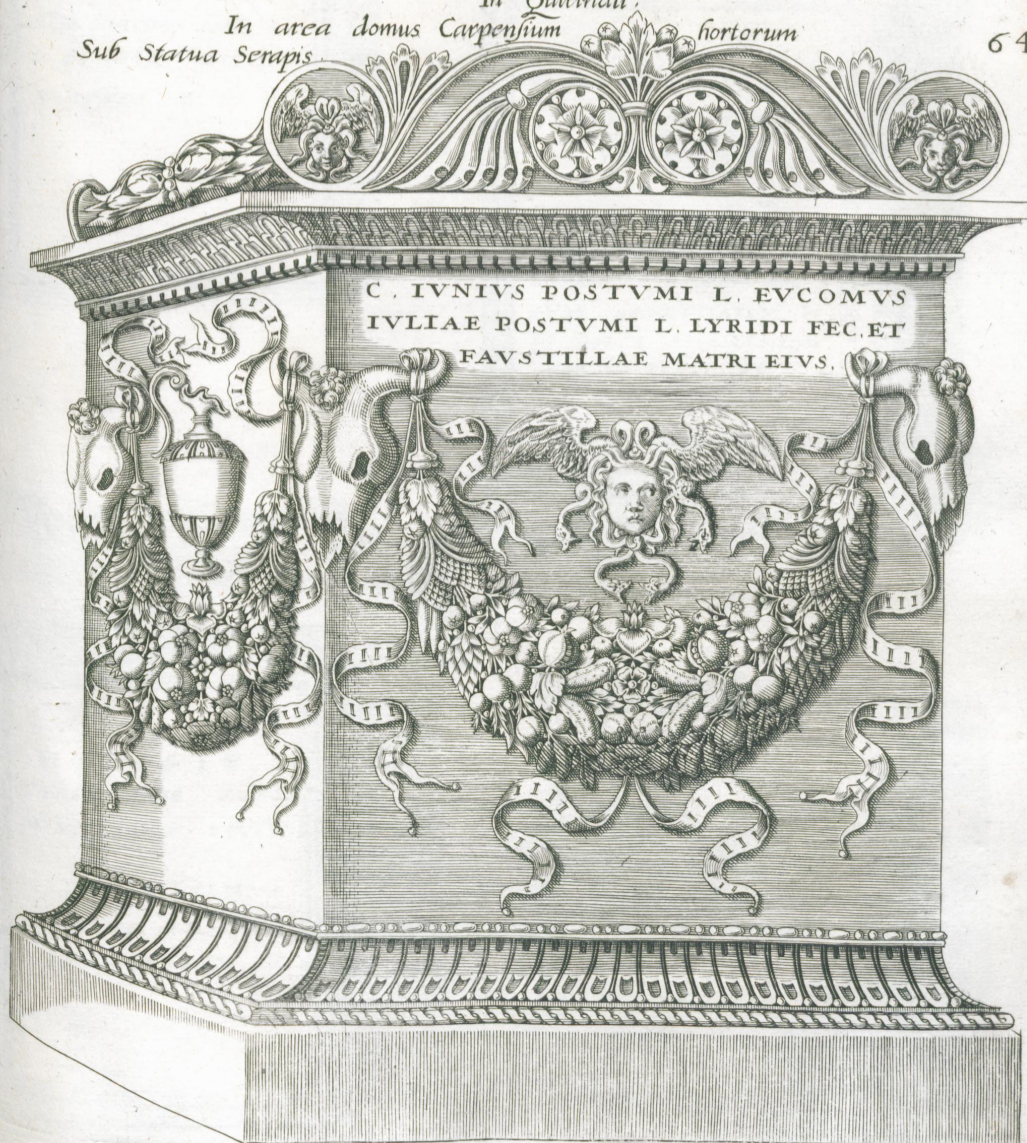 In Quirinali.
In area domus Carpensium hortorum
Sub Statua Serapis.
64
C. IVNIVS POSTVMI L. EVCOMVS
IVLIAE POSTVMI L. LYRIDI FEC. ET
FAVSTILLAE MATRI EIVS.